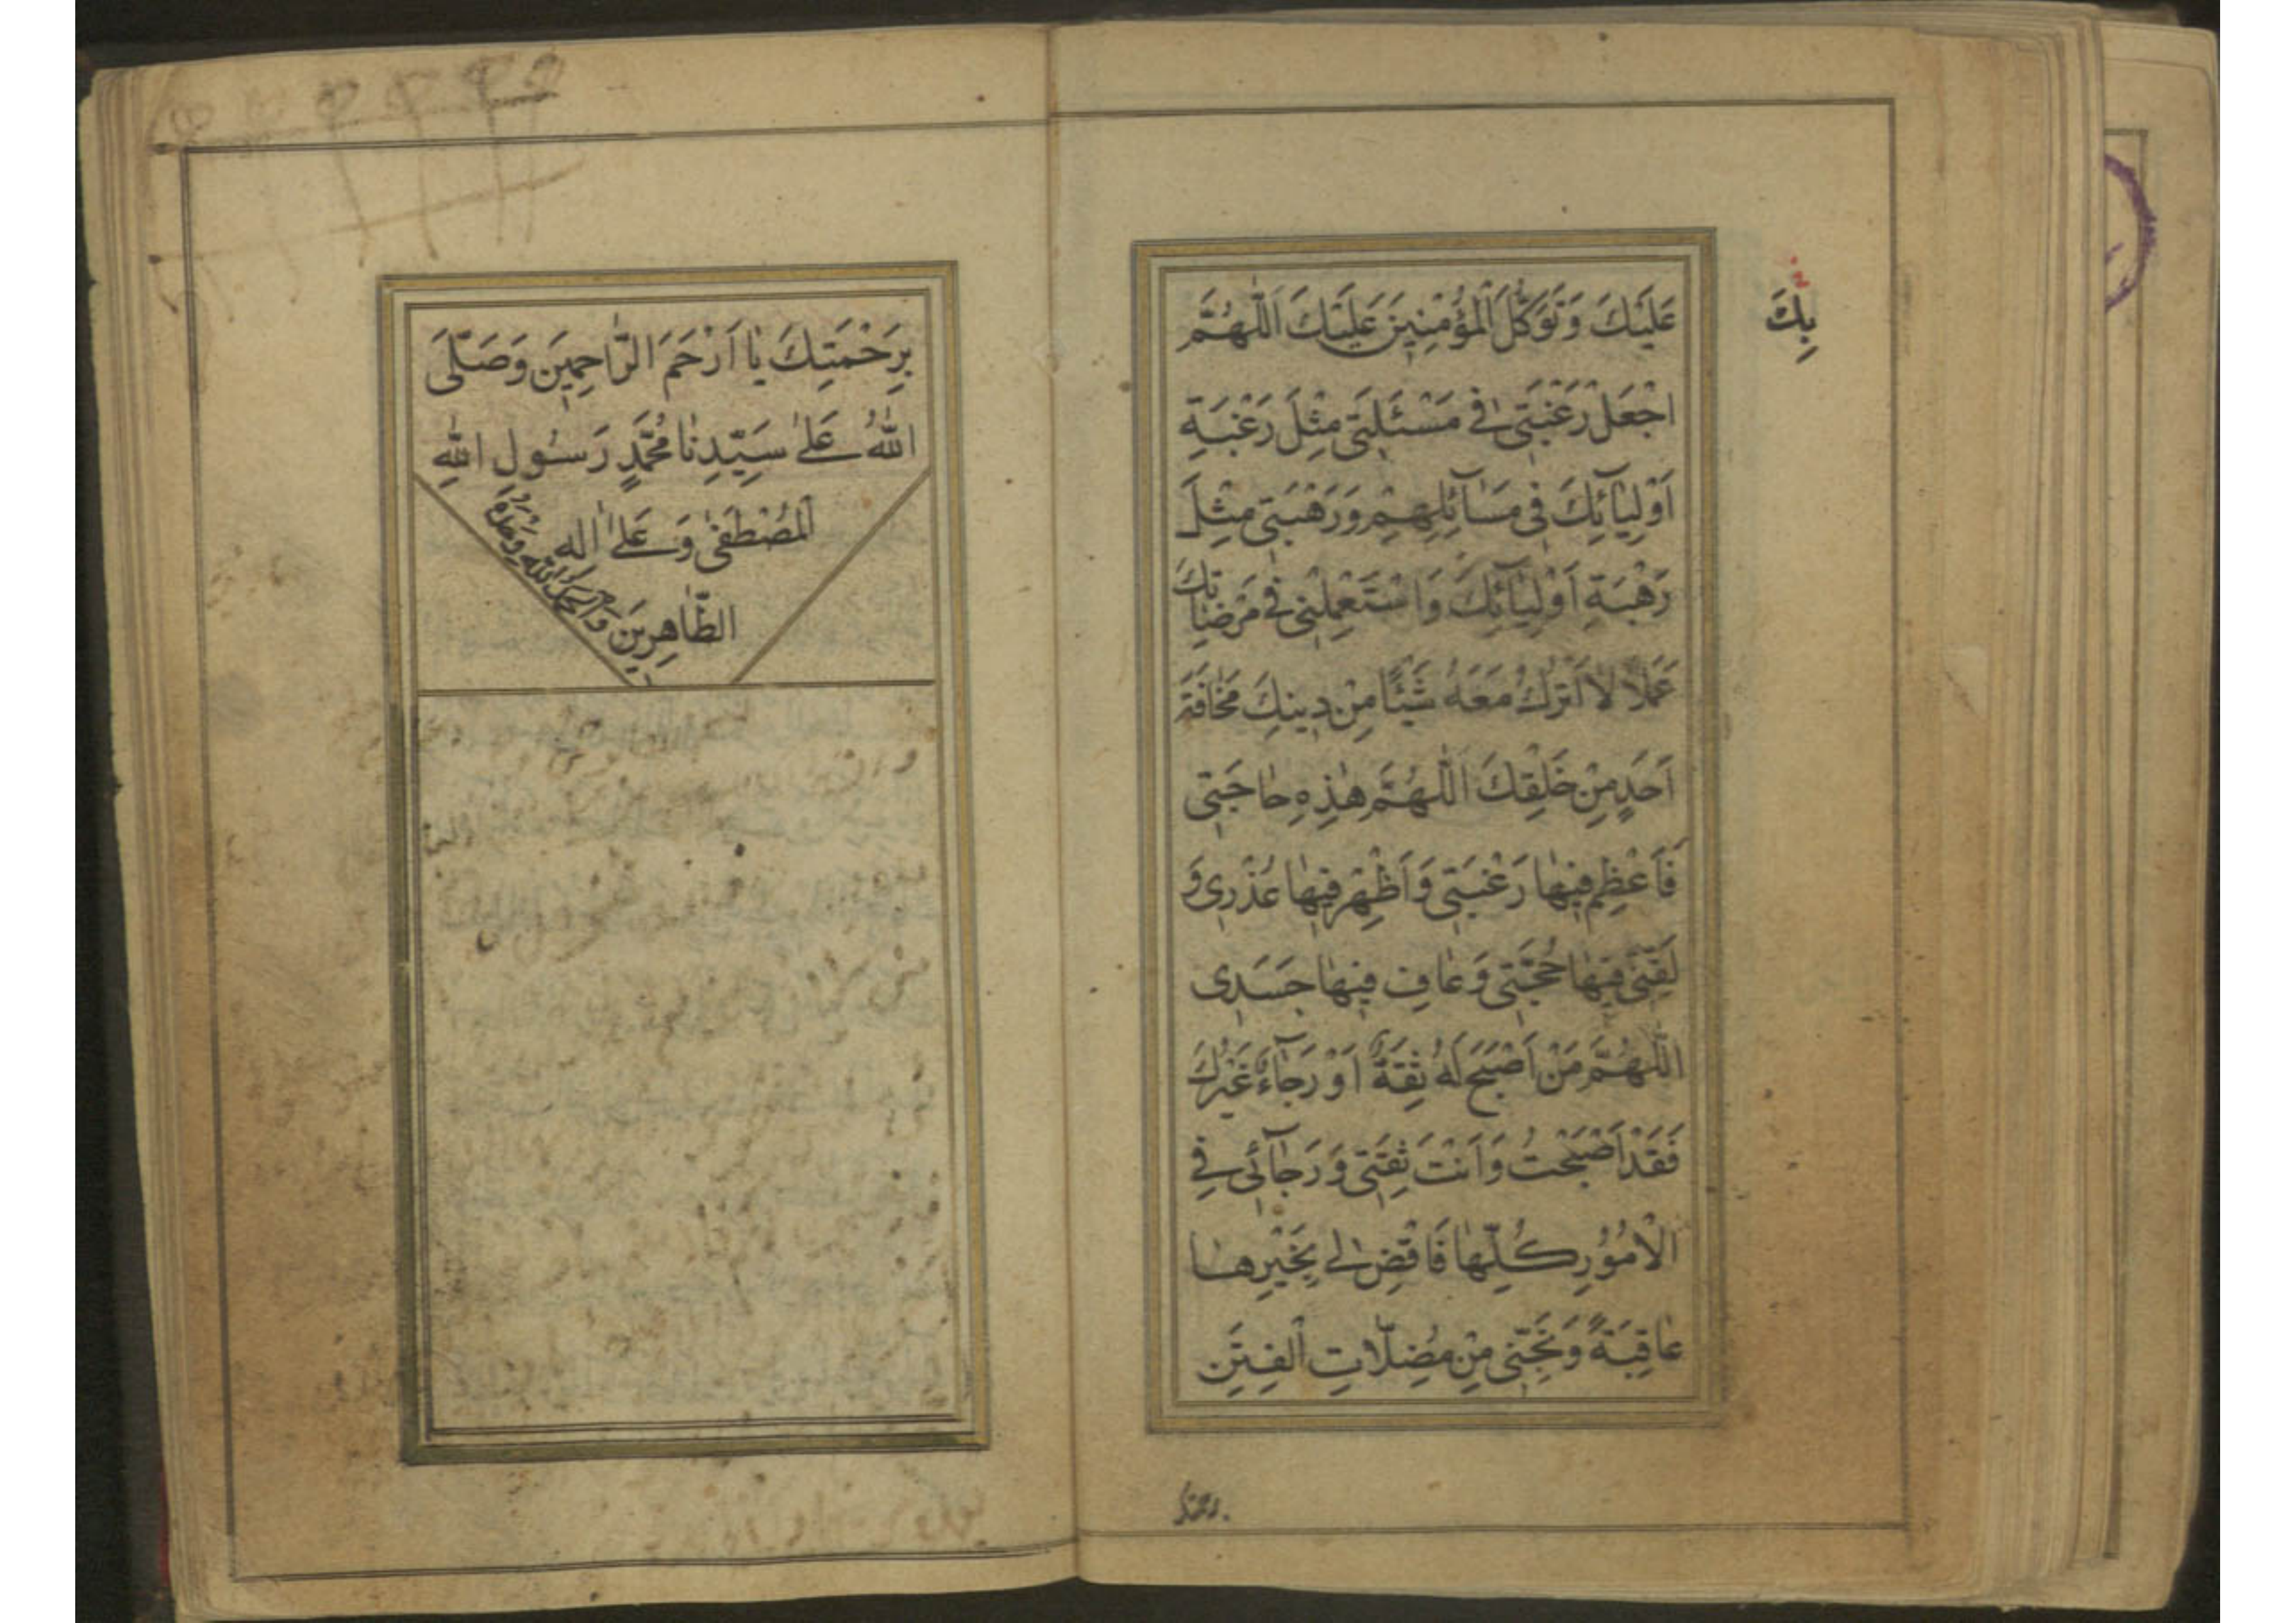 عَلَيْكَ وَتَوَكُّلَ الْمُؤْمِنِينَ عَلَيْكَ اَللّٰهُمَّ
بِكَ
اجْعَلْ رَغْبَتِى فِى مَسْئَلَتِى مِثْلَ رَغْبَةِ
اَوْلِيٰآئِكَ فِى مَسٰآئِلِهِمْ وَرَهْبَتِى مِثْلَ
رَهْبَةِ اَوْلِيٰآئِكَ وَاسْتَعْمِلْنِى فِى مَرْضٰاتِكَ
عَمَلًا لٰا اَتْرُكُ مَعَهُ شَيْئًا مِنْ دِينِكَ مَخٰافَةَ
اَحَدٍ مِنْ خَلْقِكَ اَللّٰهُمَّ هٰذِهِ حٰاجَتِى
فَاَعْظِمْ فِيهٰا رَغْبَتِى وَاَظْهِرْ فِيهٰا عُذْرِى وَ
لَقِّنِّى فِيهٰا حُجَّتِى وَعٰافِ فِيهٰا جَسَدِى
اَللّٰهُمَّ مَنْ اَصْبَحَ لَهُ ثِقَةٌ اَوْ رَجٰآءٌ غَيْرُكَ
فَقَدْ اَصْبَحْتُ وَاَنْتَ ثِقَتِى وَرَجٰآئِى فِى
الْاُمُورِ كُلِّهٰا فَاقْضِ لِى بِخَيْرِهٰا
عٰاقِبَةً وَنَجِّنِى مِنْ مُضِلّٰاتِ الْفِتَنِ
برحمتك
بِرَحْمَتِكَ يٰا اَرْحَمَ الرّٰاحِمِينَ وَصَلَّى
اللّٰهُ عَلىٰ سَيِّدِنٰا مُحَمَّدٍ رَسُولِ اللّٰهِ
الْمُصْطَفىٰ وَعَلىٰ اٰلِهِ
الطّٰاهِرِينَ وَالْحَمْدُ لِلّٰهِ وَحْدَهُ